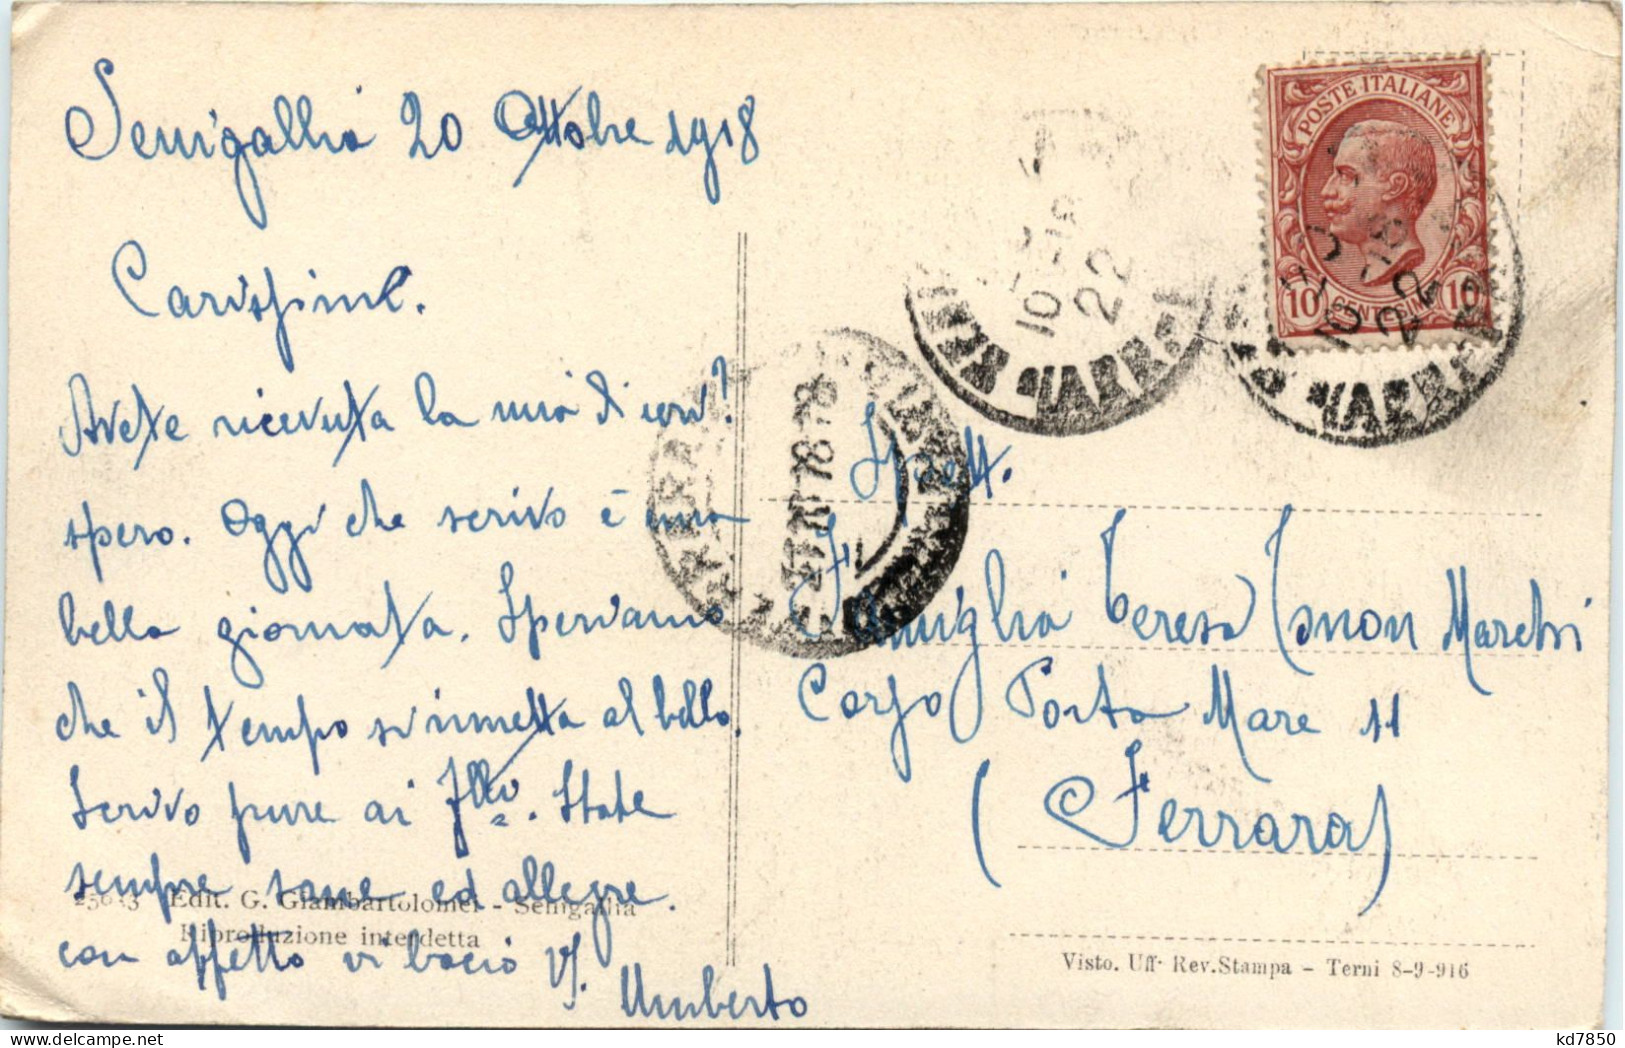 Senigallia 20 Ottobre 1918
Carissime.
Avete ricevuta la mia di ieri?
spero. Oggi che scrivo è una
bella giornata. Speriamo
che il tempo si rimetta al bello.
Scrivo pure ai F.lli. State
sempre sane ed allegre.
con affetto vi bacio Vs.
Umberto
Edit. G. Giambartolomei - Senigallia
Riproduzione interdetta
POSTE ITALIANE
10 CENTESIMI 10
Spett.
Famiglia Teresa Marchi
Corso Porta Mare 11
(Ferrara)
Visto. Uff. Rev. Stampa - Terni 8-9-916
kd7850